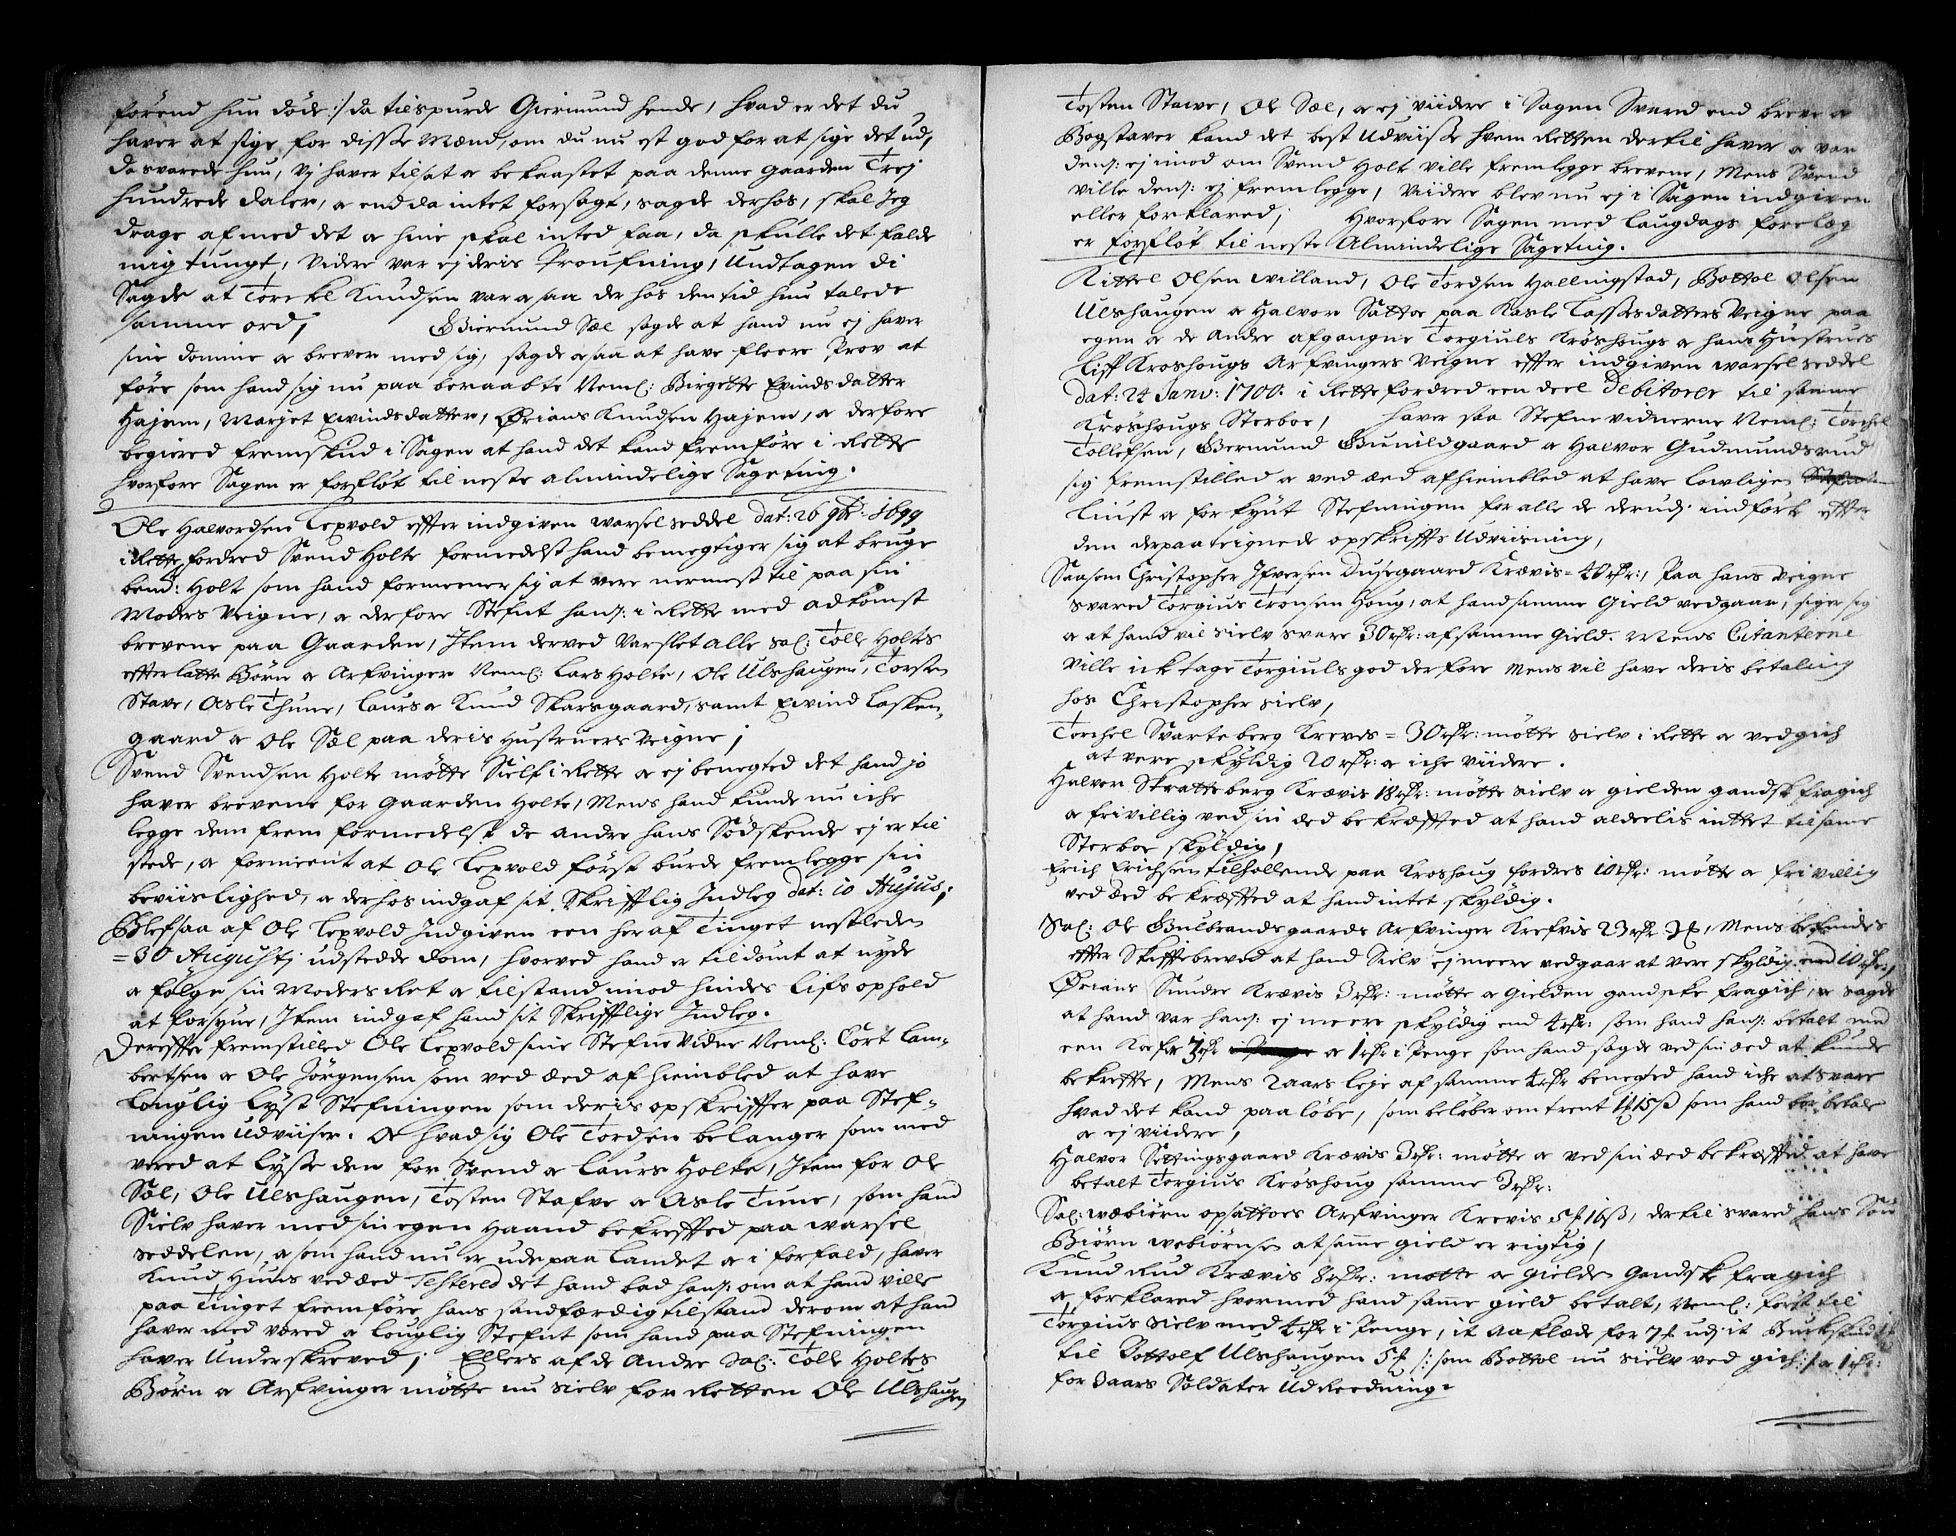 förend hun döde :/ da tilspurde Giermund hende, hvad er det du
haver at sige for disse Mænd, om du nu est god for at sige det ud,
da svarede hun, Vj haver tilsat og bekaastet paa denne gaarden Trej
hundrede daler, og end da intet forsagt, sagde derhos, skal Jeg
drage af med det og hine skal inted faa, da skulle det falde
mig tungt, Videre var ej deris Proufning, Undtagen di
Sagde at Torckel Knudsen var ogsaa der hos den tid hun talede
samme ord,   Giermund Sæl sagde at hand nu ej haver
sine domme og brever med sig, sagde ogsaa at have fleere Prov at
före som hand sig nu paa beraabte Neml: Birgette Evindsdatter
Hajem, Marjet Evindsdatter, Örians Knudsen Hajem, og derfore
begiered fremskud i Sagen at hand det kand fremföre i Rette
hvorfore Sagen er forflöt til neste almindelige Sageting.
Ole Halvordsen Lexvold effter indgiven warsel seddel dat: 26 9br: 1699
i Rette fordred Svend Holte formedelst hand bemegtiger sig at bruge
bemd: Holt som hand formeener sig at vere nermest til paa sin
Moders Veigne, og derfore Stefnt hans: i Rette med adkomst
brevene paa Gaarden, Item derved Varslet alle Sal: Tolle Holtes
effterlatte Börn og Arfvinger Neml: Lars Holte, Ole Ulshaugen, Torsten
Stave, Asle Thune, Laurs og Knud Skarsgaard, samt Evind Lasken-
gaard og Ole Sæl paa deris Hustruers Veigne,
Svend Svendsen Holte mötte Sielf i Rette og ej benegted det hand jo
haver brevene for Gaarden Holte, Mens hand kunde nu iche
legge dem frem formedelst de andre hans Södskende ej er til
stede, og formeent at Ole Lexvold först burde fremlegge sin
beviislighed, og derhos indgaf sit Skrifftlig Indleg dat: 10 Hujus,
Blef saa af Ole Lexvold Indgiven een her af Tinget nestleden
= 30 Augusti udstedde dom, hvorved hand er tildömt at nyde
og fölge sin Moders Ret og tilstand imod hindes Lifs ophold
at forsyne, Item indgaf hand sit Skrifftlige Indleg.
Dereffter fremstilled Ole Lexvold sine Stefne Vidner Neml: Cort Lam-
bertsen og Ole Jörgensen som ved æed afhiembled at have
Louglig lyst Stefningen som deris opskriffter paa Stef-
ningen Udviiser. Og hvad sig Ole Tordsen belanger som med
vered at lysse den for Svend og Laurs Holte, Item for Ole
Sæl, Ole Ulshaugen, Tosten Stafve og Asle Tune, som hand
Sielv haver med sin egen Haand bekreffted paa warsel
seddelen, og som hand nu er ude paa Landet og i forfald, haver
Knud Huus ved æed Testered det hand bad hans: om at hand ville
paa Tinget fremföre hans sandfærdig tilstand derom at hand
haver med vered og louglig Stefnt som hand paa Stefningen
haver Underskreved;   Ellers af de Andre Sal: Tolle Holtes
Börn og Arfvinger mötte nu sielv for Retten Ole Ulshaugen
Tosten Stawe, Ole Sæl, og ej viidere i Sagen Svared end breve og
Bogstaver kand det best Udviisse hvem Retten dertil haver og var
dens: ej imod om Svend Holt ville fremlegge brevene, Mens Svend
ville dens: ej fremlegge, Viidere blev nu ej i Sagen indgiven
eller forklared,   Hvorfore Sagen med Laugdags foreleg
er forflöt til neste Almindelige Sageting.
Kittel Olsen Willand, Ole Tordsen Hallingstad, Bottol Olsen
Ulshaugen og Halvor Sattoe paa Aasle Lassesdatters Veigne paa
egne og de andre afgangne Torgiuls Kröshougs og hans Hustrues
Liff Kroshougs Arfvingers Veigne effter indgiven warsel seddel
dat: 24 Janv: 1700. i Rette fordred een deel Debitorer til samme
Kröshougs Sterboe,   haver saa Stefne vidnerne Neml: Torchel
Tollefsen, Germund Gunildgaard og Halvor Gudmundsrud
sig fremstilled og ved æed afhiembled at have Lowligen
Liust og forkynt Stefningen for alle de derudj indförte effter
den derpaa teignede opskriffts Udviisning,
Saasom Christopher Ifversen Dusegaard Krævis = 40 rdr:, Paa hans Veigne
svared Torgius Tronsen Houg, at hand samme Gield vedgaar, siger sig
og at hand vil sielv svare 30 rdr: af samme gield. Mens Citanterne
ville ick tage Torgiuls god derfore Mens vil have deris betaling
hos Christopher sielv,
Torchel Svarteberg Kreves = 30 rdr: mötte sielv i Rette og vedgich
at vere skyldig 20 rdr: og iche viidere.
Halvor Skratteberg Krævis 18 rdr: mötte sielv og gielden gandsk fragich
og frivillig ved sin æed bekreffted at hand alderlis inttet til same
Sterboe skyldig,
Erich Erichsen tilhollende paa Kroshoug fordres 10 rdr: mötte og frivillig
ved æed bekreffted at hand intet skyldig.
Sal: Ole Gulbrandsgaards Arfvinger Krefvis 23 rdr 3 #, Mens bekiendes
effter Skifftebreved at hand Sielv ej meere vedgaar at vere skyldig end 10 rdr:,
Örians Sundre Krævis 3 rdr: mötte og gielden gandske fragich, og sagde
at hand var hans: ej meere skyldig end 4 rdr: som hand hans: betalt med
een Koe for 3 rdr og 1 rdr i Penge som hand sagde ved sin æed at kunde
bekreffte, Mens 2 aars leje af samme 4 rdr benegted hand iche at svare
hvad det kand paa löbe, som belöber omtrent 1 # 15 ß som hand bör betale
og ej viidere,
Halvor Settingsgaard Krævis 3 rdr: mötte og ved sin æed bekreffted at have
betalt Torgius Kröshoug samme 3 rdr:
Sal: Webiörn opsattoes Arfvinger Krevis 5 # 16 ß, dertil svared hans Sön
Biörn Webiörnsen at same gield er rigtig,
Knud Rud Krævis 8 rdr: mötte og gielden Gandske fragich
og forklared hvormed hand same gield betalt, Neml: först til
Torgius sielv med 4 rdr i Penge, it Aaklæde for 7 # udj it
til Bottolf Ulshaugen 5 # /: som Bottol nu sielv ved gich :/ og 1 rdr:
for 3 aars Soldater Udreedning.